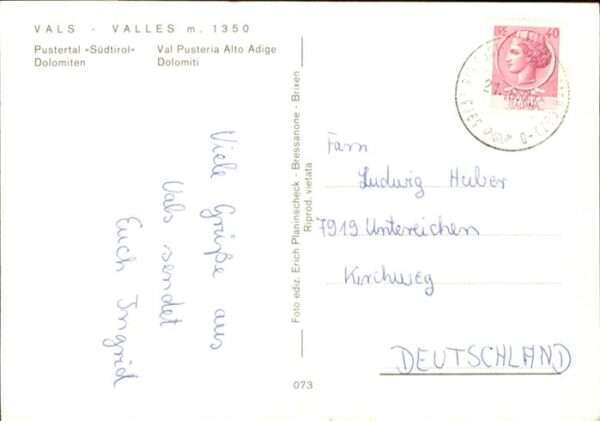 VALS - VALLES m. 1350
Pustertal «Südtirol»
Dolomiten
Val Pusteria Alto Adige
Dolomiti
Viele Grüße aus
Vals sendet
Euch Ingrid
Foto ediz. Erich Planinscheck - Bressanone - Brixen
Riprod. vietata
073
LIRE 40
Fam
Ludwig Huber
7919 Untereichen
Kirchweg
DEUTSCHLAND